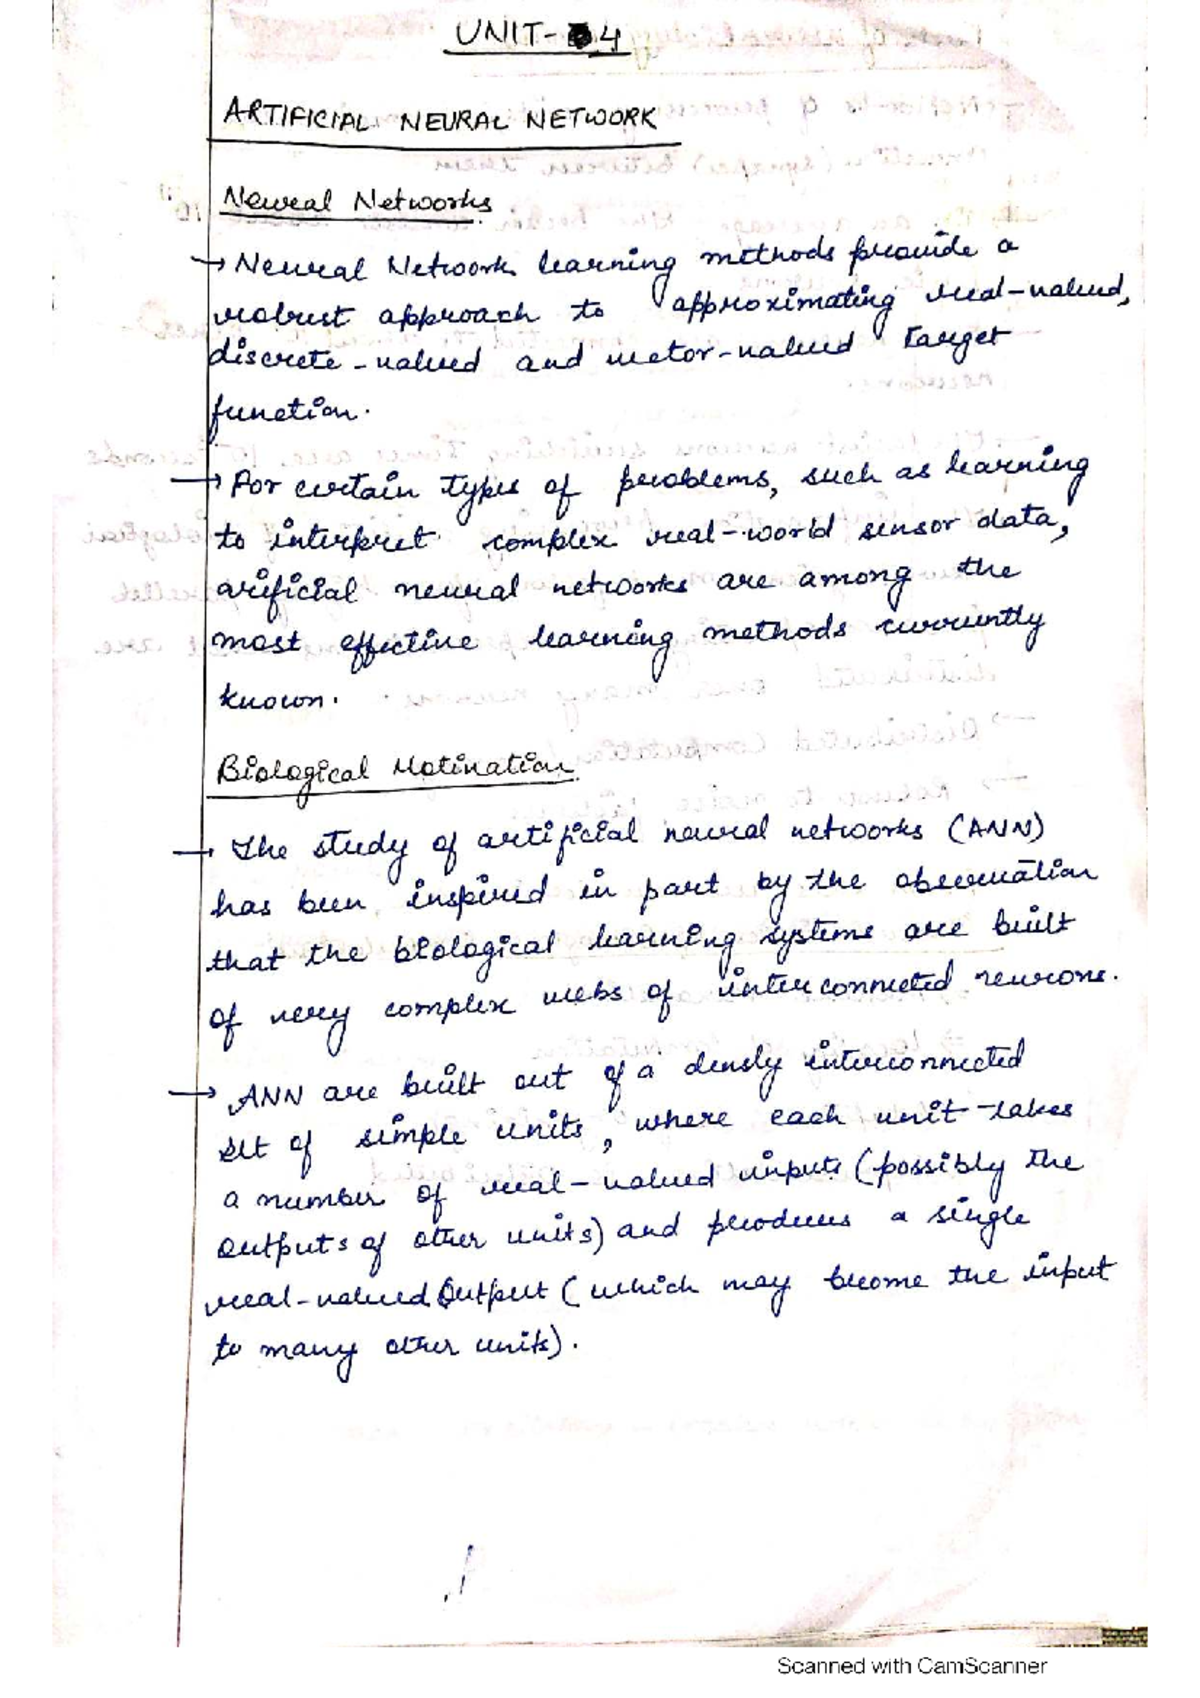 UNIT-4
ARTIFICIAL NEURAL NETWORK
Neural Networks
→ Neural Network learning methods provide a
robust approach to approximating real-valued,
discrete-valued and vector-valued target
function.
→ For certain types of problems, such as learning
to interpret complex real-world sensor data,
arificial neural networks are among the
most effective learning methods currently
known.
Biological Motivation
→ The study of artificial neural networks (ANN)
has been inspired in part by the observation
that the biological learning systems are built
of very complex webs of interconnected neurons.
→ ANN are built out of a densly interconnected
set of simple units, where each unit takes
a number of real-valued inputs (possibly the
outputs of other units) and produces a single
real-valued Output (which may become the input
to many other units).
Scanned with CamScanner